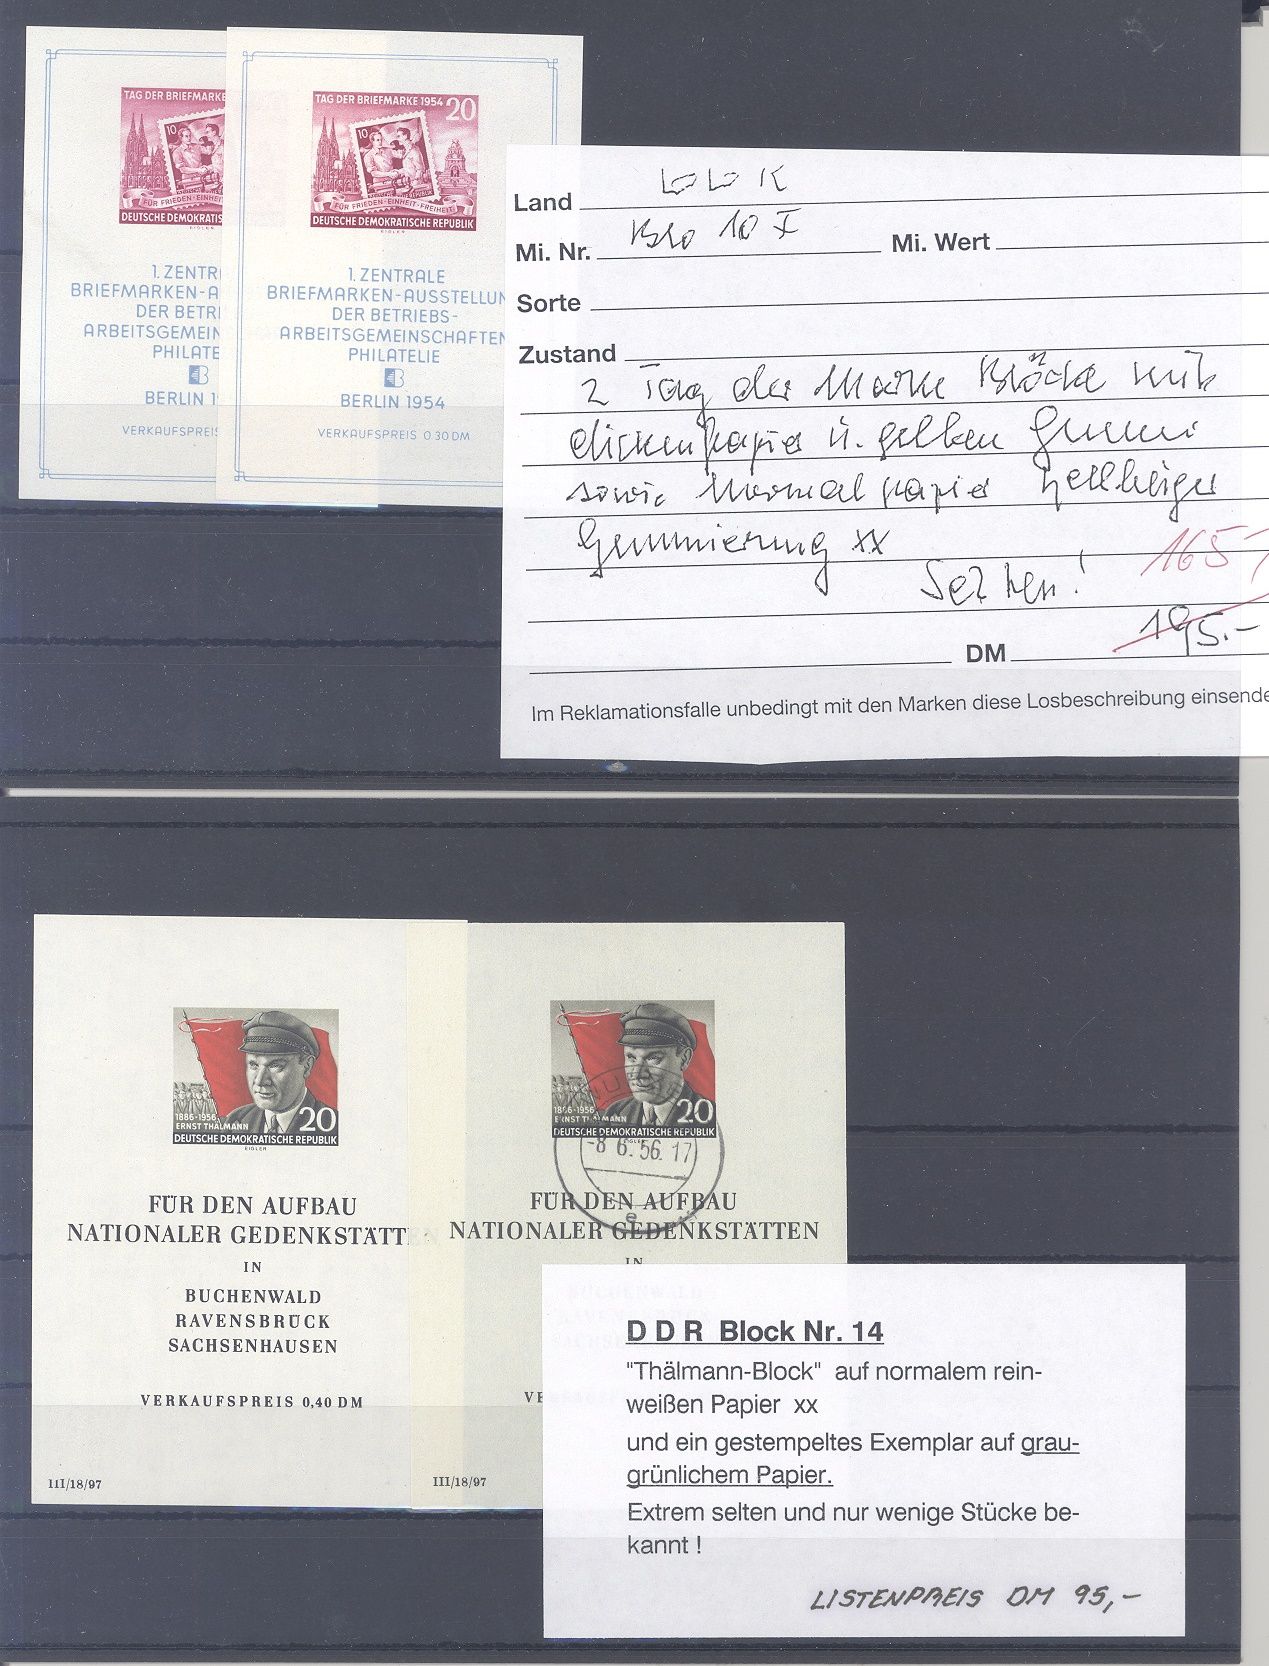 TAG DER BRIEFMARKE
10
FÜR FRIEDEN·EINHEIT
DEUTSCHE DEMOKRATIS
EIGLER
1. ZENTR
BRIEFMARKEN-A
DER BETRI
ARBEITSGEMEIN
PHILATE
BERLIN 1
VERKAUFSPREIS
TAG DER BRIEFMARKE 1954 20
10
FÜR FRIEDEN·EINHEIT·FREIHEIT
DEUTSCHE DEMOKRATISCHE REPUBLIK
EIGLER
1. ZENTRALE
BRIEFMARKEN-AUSSTELLUN
DER BETRIEBS-
ARBEITSGEMEINSCHAFTEN
PHILATELIE
BERLIN 1954
VERKAUFSPREIS 0.30 DM
Land
Mi. Nr. Blo 10 I Mi. Wert
Sorte
Zustand
2 Tag der Marke Blöcke mit
dickem papier u. gelben Gummi
sowie Normalpapier hellbeiger
Gummierung xx
Selten!
165,
195.-
DM
Im Reklamationsfalle unbedingt mit den Marken diese Losbeschreibung einsende
1886-1956
ERNST THÄLMANN 20
DEUTSCHE DEMOKRATISCHE REPUBLIK
EIGLER
FÜR DEN AUFBAU
NATIONALER GEDENKSTÄTT
IN
BUCHENWALD
RAVENSBRÜCK
SACHSENHAUSEN
VERKAUFSPREIS 0,40 DM
III/18/97
1886-1956
ERNST THÄLMANN 20
DEUTSCHE DEMOKRATISCHE REPUBLIK
EIGLER
-8.6.56.17
e
FÜR DEN AUFBAU
NATIONALER GEDENKSTÄTTEN
IN
VE
III/18/97
D D R Block Nr. 14
"Thälmann-Block" auf normalem rein-
weißen Papier xx
und ein gestempeltes Exemplar auf grau-
grünlichem Papier.
Extrem selten und nur wenige Stücke be-
kannt !
LISTENPREIS DM 95,-